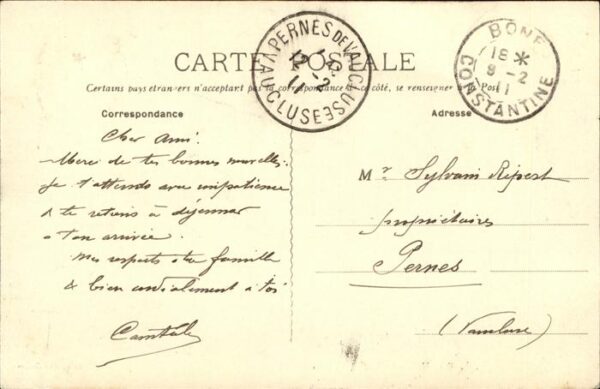 CARTE POSTALE
Certains pays étrangers n'acceptant pas la correspondance de ce côté, se renseigner à la Poste
Correspondance
Adresse
PERNES DE VAUCLUSE
12-2
11
VAUCLUSE
BONE
18 *
9-2
11
CONSTANTINE
Cher Ami.
Merci de tes bonnes nouvelles.
Je t'attends avec impatience
& te retiens à déjeuner
à ton arrivée.
Mes respects à ta famille
& bien cordialement à toi
Mr Sylvain Ripert
propriétaire
Pernes
(Vaucluse)